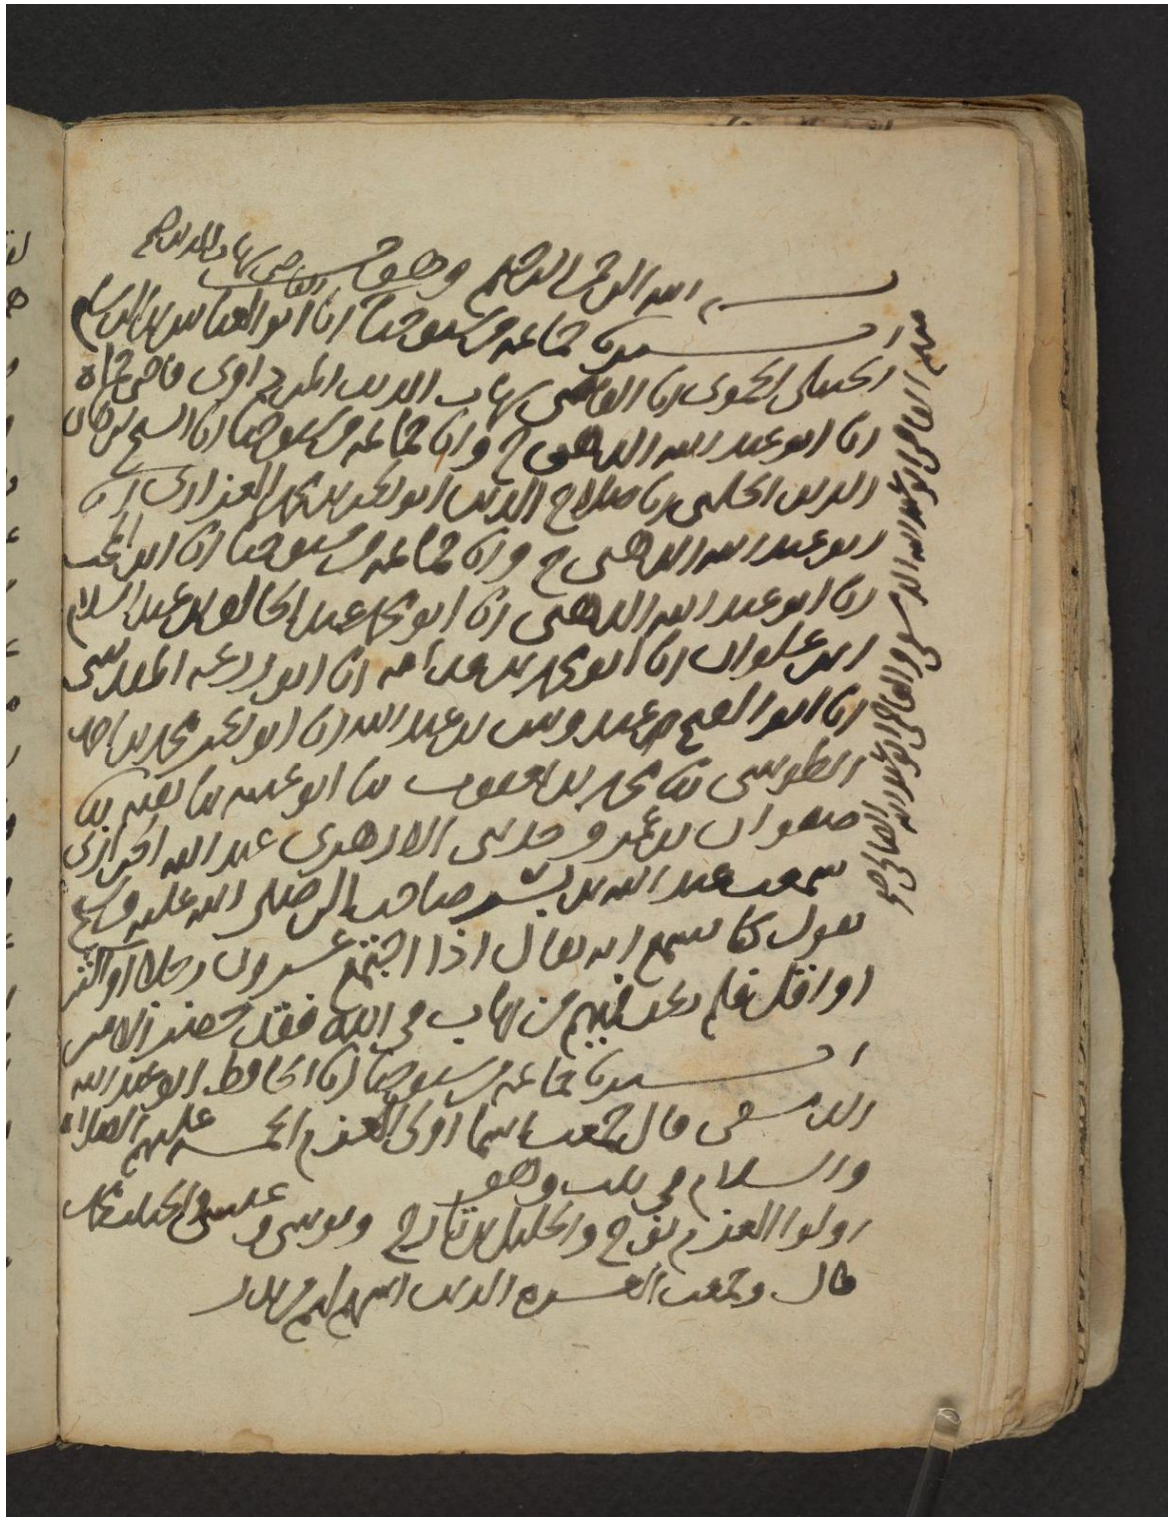 بسم الله الرحمن الرحيم وهو حسبي
القاضي شهاب الدين
اخبرنا جماعة من شيوخنا انا ابو العباس بن الرسام
الحنبلي الحموي انا القاضي شهاب الدين المرداوي قاضي حماة
انا ابو عبد الله الذهبي ح وانا جماعة من شيوخنا انا الشيخ برهان
الدين الحلبي انا صلاح الدين ابو بكر بن محمد انا
ابو عبد الله الذهبي ح وانا جماعة من شيوخنا انا ابن المحب
انا ابو عبد الله الذهبي انا ابو محمد عبد الخالق بن عبد السلام
ابن علوان انا ابو محمد بن قدامة انا ابو زرعة المقدسي
انا ابو الفتح عبدوس بن عبد الله انا ابو بكر محمد بن احمد
الطوسي ثنا محمد بن يعقوب ثنا ابو عتبة ثنا بقية ثنا
صفوان بن عمرو وحدثني الازهر بن عبد الله الحرازي
سمعت عبد الله بن بسر صاحب النبي صلى الله عليه وسلم
يقول كنا نسمع انه يقال اذا اجتمع عشرون رجلا او اكثر
او اقل فلم يكن فيهم من يهاب في الله فقد حضر الامر
اخبرنا جماعة من شيوخنا انا الحافظ ابو عبد الله
الدمشقي قال جمعت اسما اولي العزم الخمسة عليهم الصلاة
والسلام في بيت وهو
اولوا العزم نوح والخليل بن تارح وموسى وعيسى والحبيب محمد
قال وجمعت العشرة الذين
منهم القاضي ابو عبد الله والقاضي